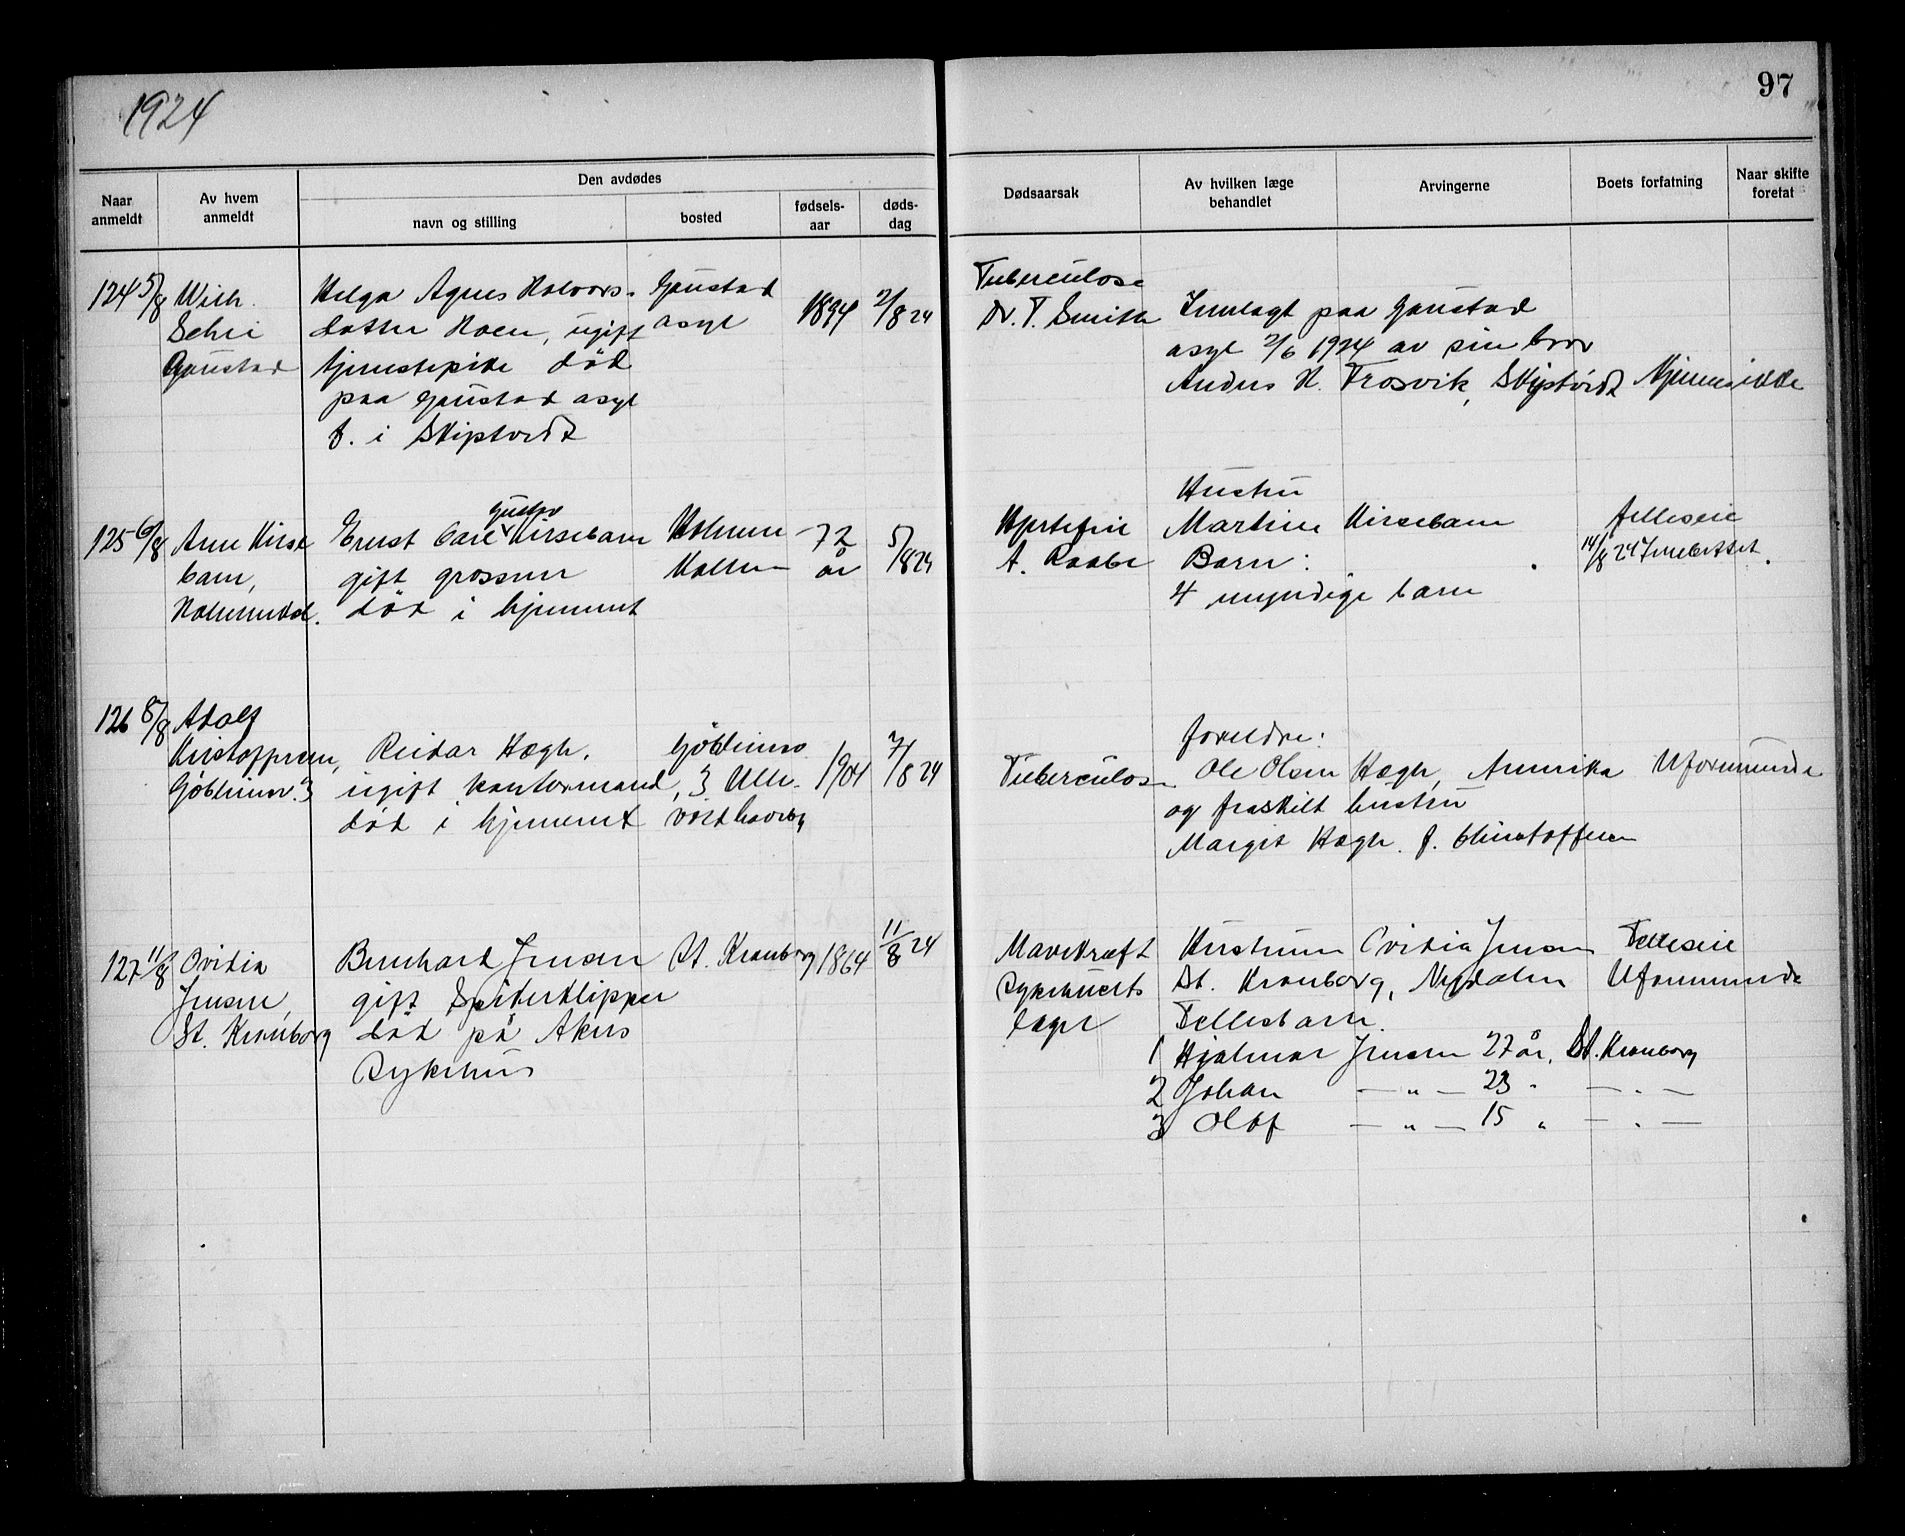 1924
97
Naar anmeldt
Av hvem anmeldt
Den avdødes
navn og stilling
bosted
fødsels-aar
døds-dag
Dødsaarsak
Av hvilken læge behandlet
Arvingerne
Boets forfatning
Naar skifte foretat
124 5/8 Wilh.
Gaustad
Helga Agnes Halvors-
datter Haen, ugift
tjenestepike död
paa Gaustad asyl
f. i Skiptvedt
Gaustad
asyl
1894
2/8 24
Tuberculose
Dr. T. Smith
Innlagt paa Gaustad
asyl 2/6 1924 av sin bror
Anders H. Trosvik, Skiptvedt
Kjennes ikke
125 6/8 Arne Kirse
bom,
Holmenkol.
Ernst Carl Gustav Kirsebom
gift grosserer
död i hjemmet
Holmen
Kollen
72
år
5/8 24
Hjertefeil
A. Raabe
Hustru
Martine Kirsebom
Barn:
4 myndige barn
felleseie
14/8 24 Uskiftet.
126 8/8 Adolf
Kristoffersen,
Reidar Hægh,
ugift kontormand,
död i hjemmet
3 Ulle-
vold haveby
1904
7/8 24
Tuberculose
foreldre:
Ole Olsen Hægh, Annika
og fraskilt hustru
Margit Hægh f. Christoffersen
Uformuende
127 11/8 Ovidia
Jensen,
St. Kronborg
Bernhard Jensen
gift
död på Akers
Sykehus
St. Kronborg
1864
11/8 24
Mavekræft
Sykehusets
læger
Hustruen Ovidia Jensen
St. Kronborg, Nydalen
Fellesbarn.
1 Hjalmar Jensen 27 år, St. Kronborg
2 Johan — " — 23 " — " —
3 Olof — " — 15 " — " —
Felleseie
Uformuende